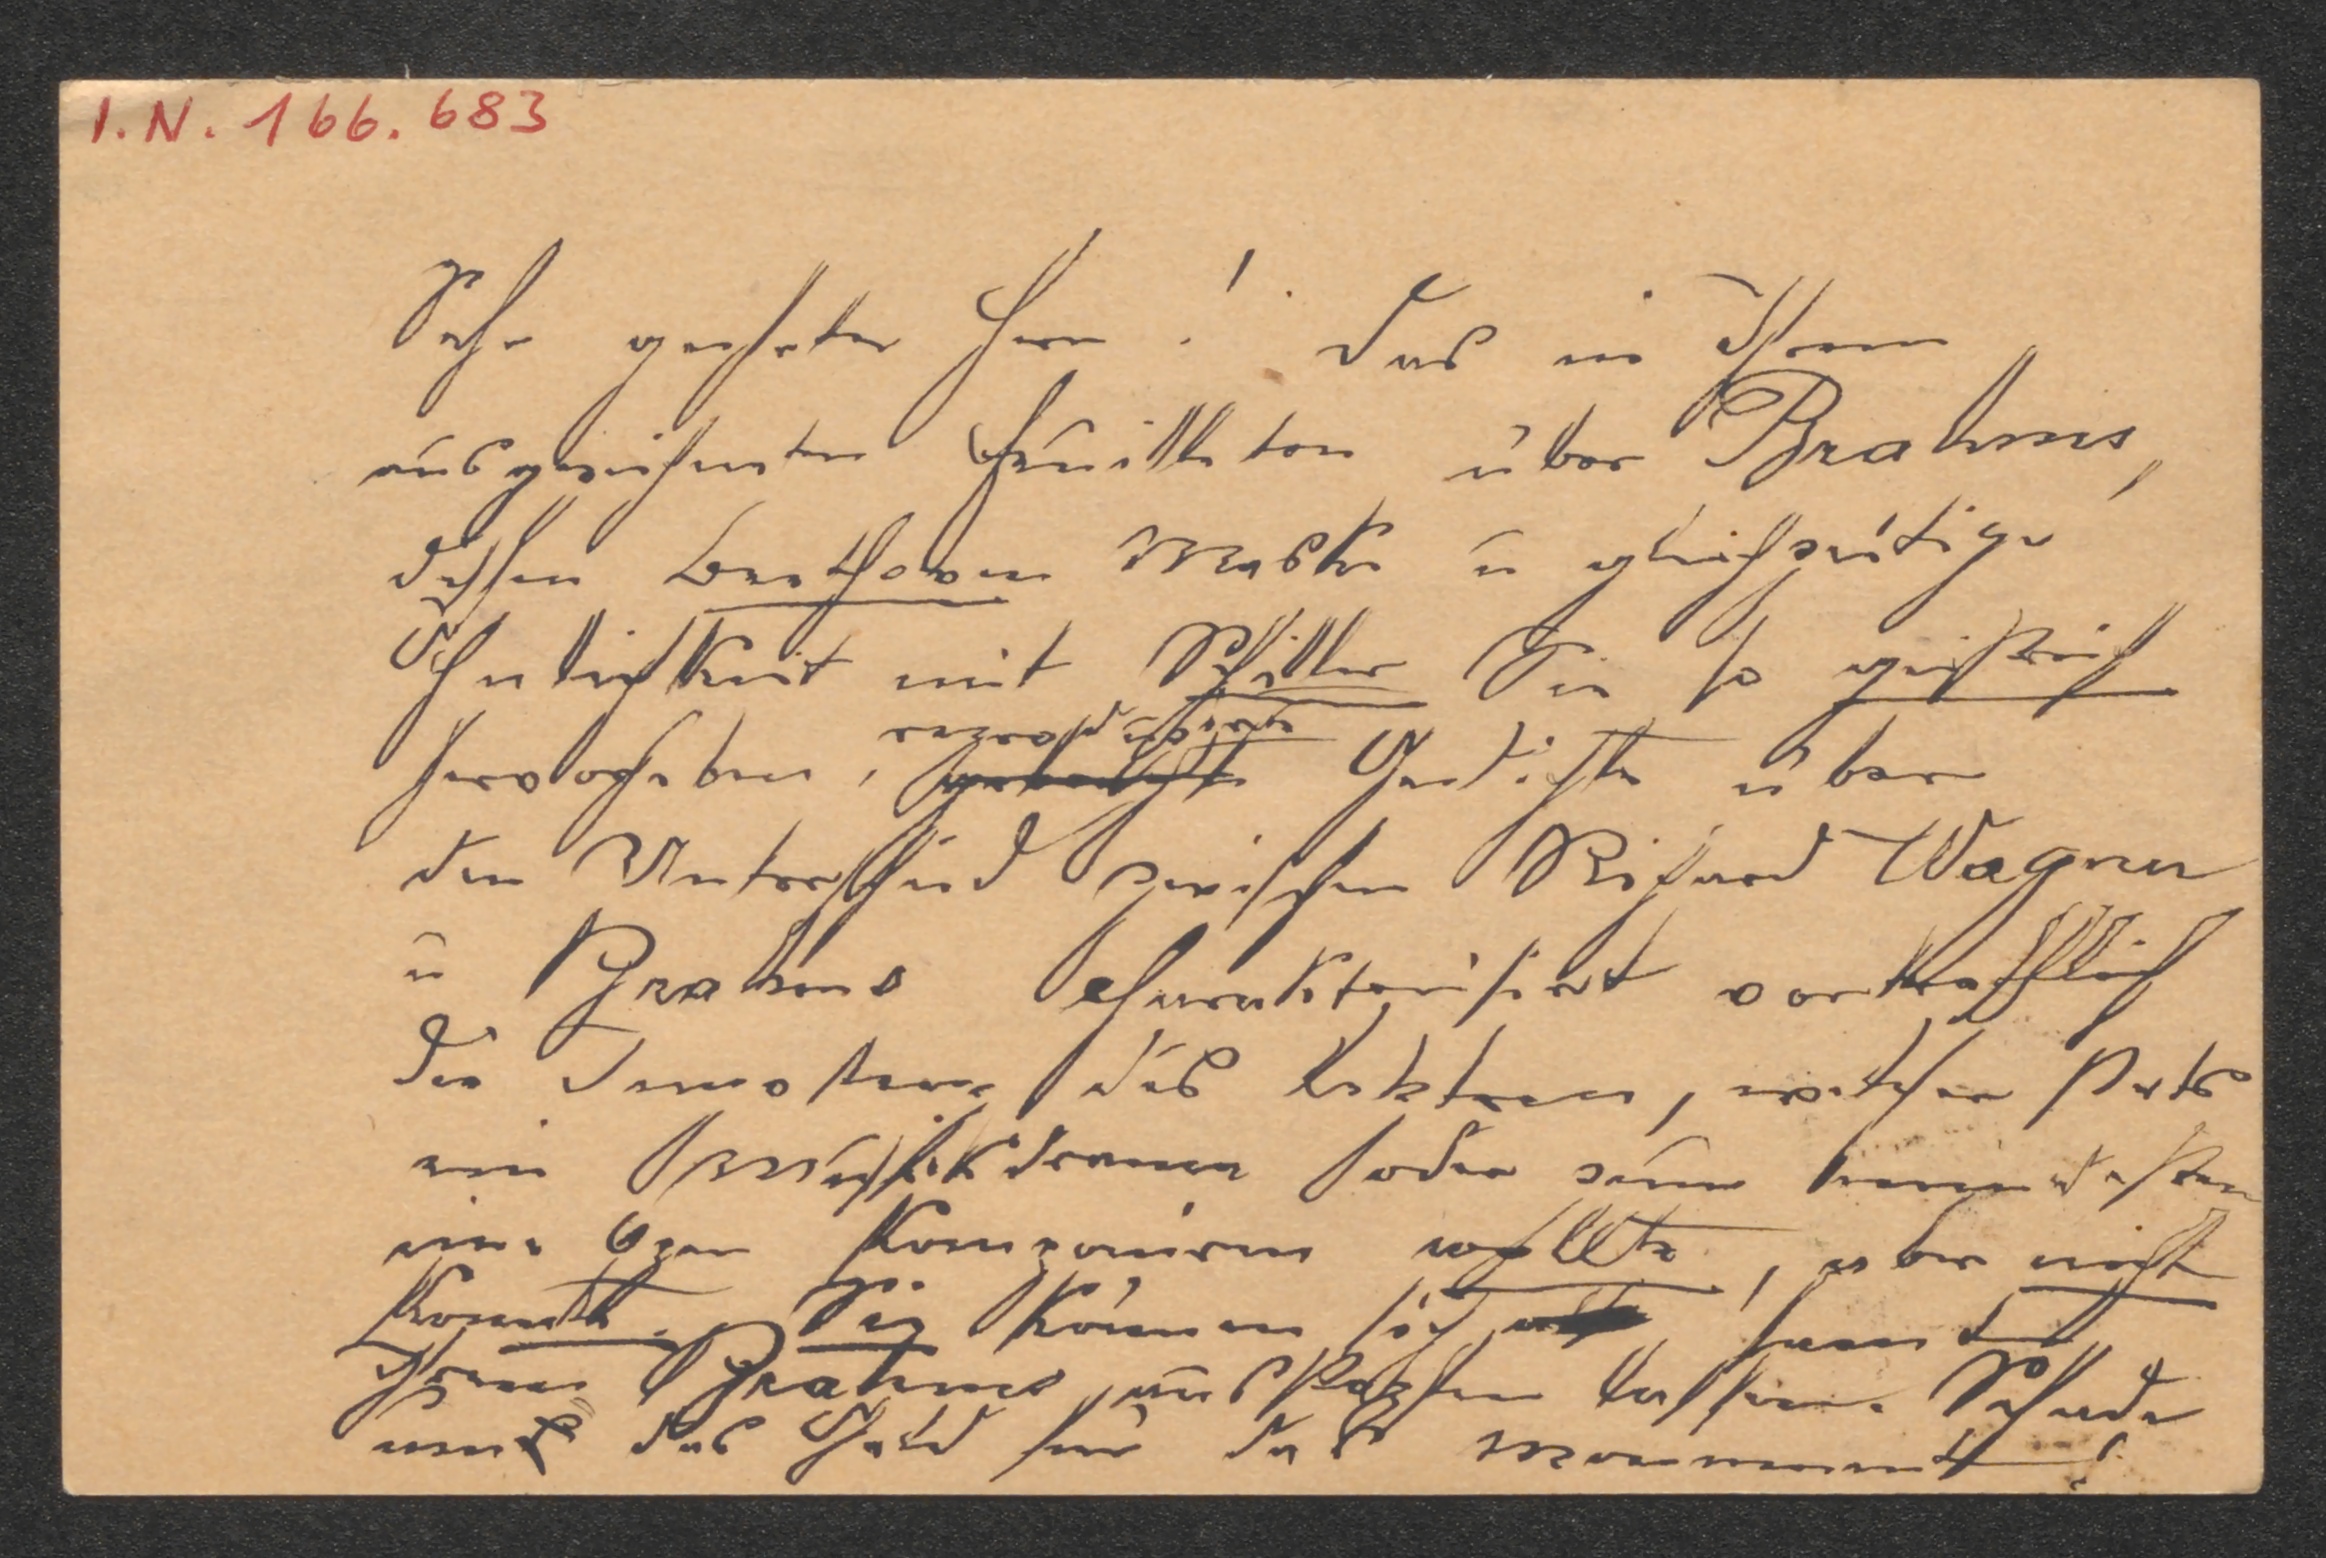 I.N. 166.683
Sehr geehrter Herr! Das in Ihrem
ausgezeichneten Feuilleton über Brahms,
dessen Beethoven Maske u gleichzeitige
Ähnlichkeit mit Schiller Sie so geistreich
hervorheben, reproduzirte Gedicht über
den Unterschied zwischen Richard Wagner
u Brahms charakterisirt vortrefflich
die des Letzteren, welcher stets
ein Musikdrama oder zum mindesten
eine Oper komponiren wollte, aber nicht
konnte. Sie können sich samt
Ihrem Brahms ausstopfen lassen. Schade
um das Geld für das Monument!